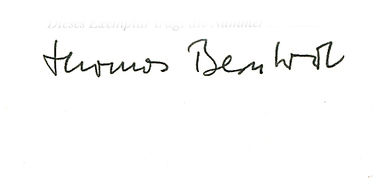 Dieses Exemplar trägt die Nummer
Thomas Bernhard